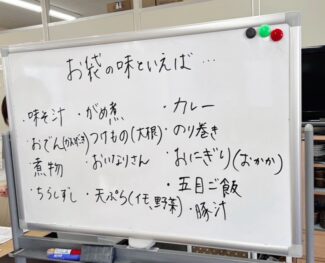 お袋の味といえば…
・味そ汁 ・がめ煮 ・カレー
・おでん(かんだき) ・つけもの(大根) ・のり巻き
・煮物 ・おいなりさん ・おにぎり(おかか)
・ちらしずし ・天ぷら(イモ、野菜) ・五目ご飯
・豚汁